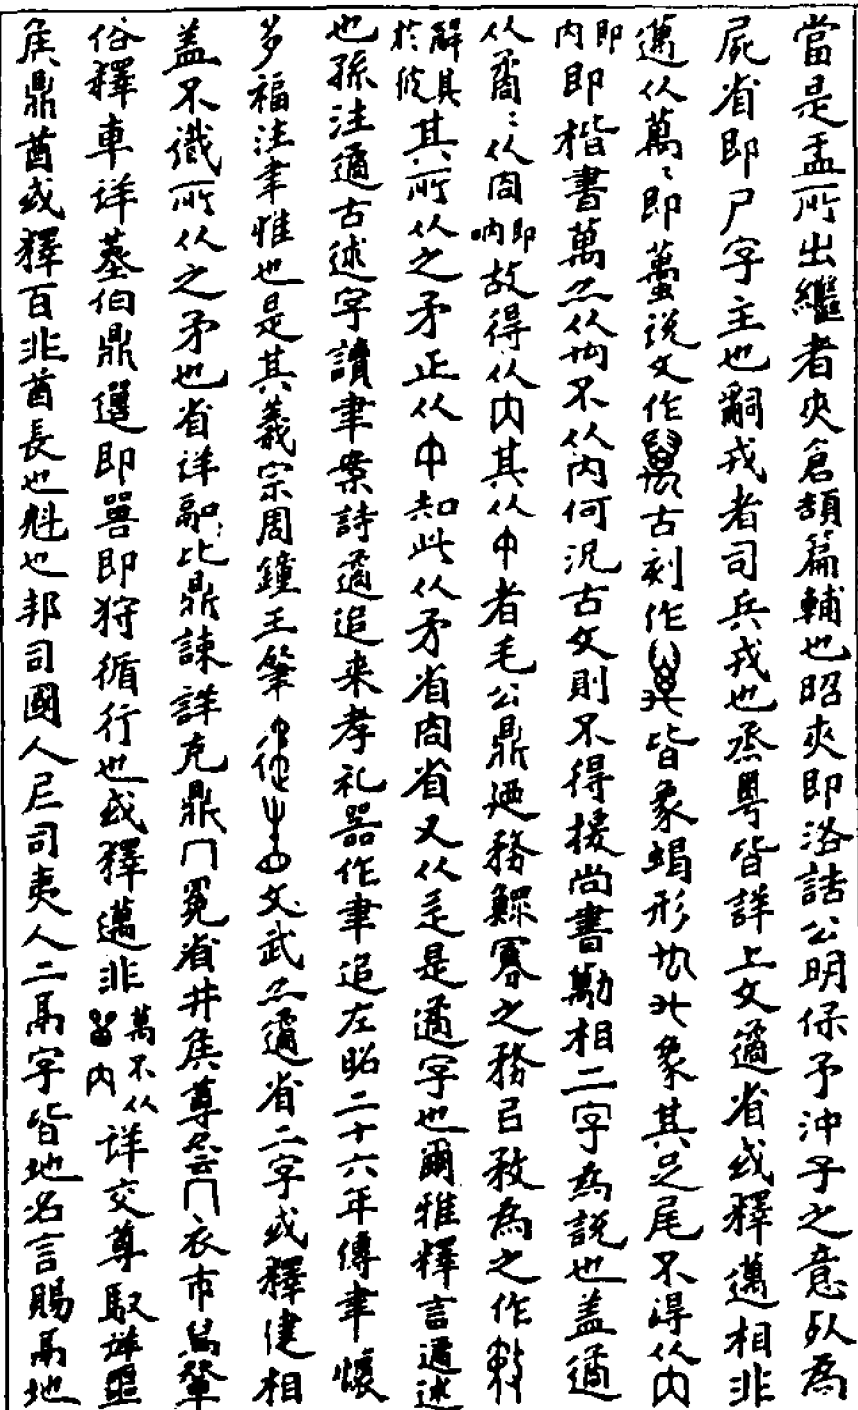 當是盂所出繼者夾倉頡篇輔也昭夾即洛誥公明保予沖子之意㱑為
屍省即尸字主也嗣戎者司兵戎也烝粤皆詳上文遹省或釋邁相非
邁从萬萬即蠆說文作古刻作皆象蝎形象其足尾不得从内
即内即楷書萬亦从不从内何況古文則不得援尚書勱相二字為說也盖遹
从矞矞从㕯即吶故得从内其从中者毛公鼎廼務鰥寡之務㠯敄為之作
解其於彼其所从之矛正从中知此从矛省㕯省又从辵是遹字也爾雅釋言遹述
也孫注遹古述字讀聿案詩遹追来孝礼器作聿追左昭二十六年傳聿懷
多福注聿惟也是其義宗周鐘王肈文武亦遹省二字或釋健相
盖不識所从之矛也省详鬲比鼎諫詳克鼎冂冕省井侯尊云冂衣市舄輦
俗釋車详基伯鼎遷即噐即狩循行也或釋邁非萬不从内详交尊馭详盟
侯鼎酋或釋百非酋長也魁也邦司國人𡰥司夷人二鬲字皆地名言賜鬲地